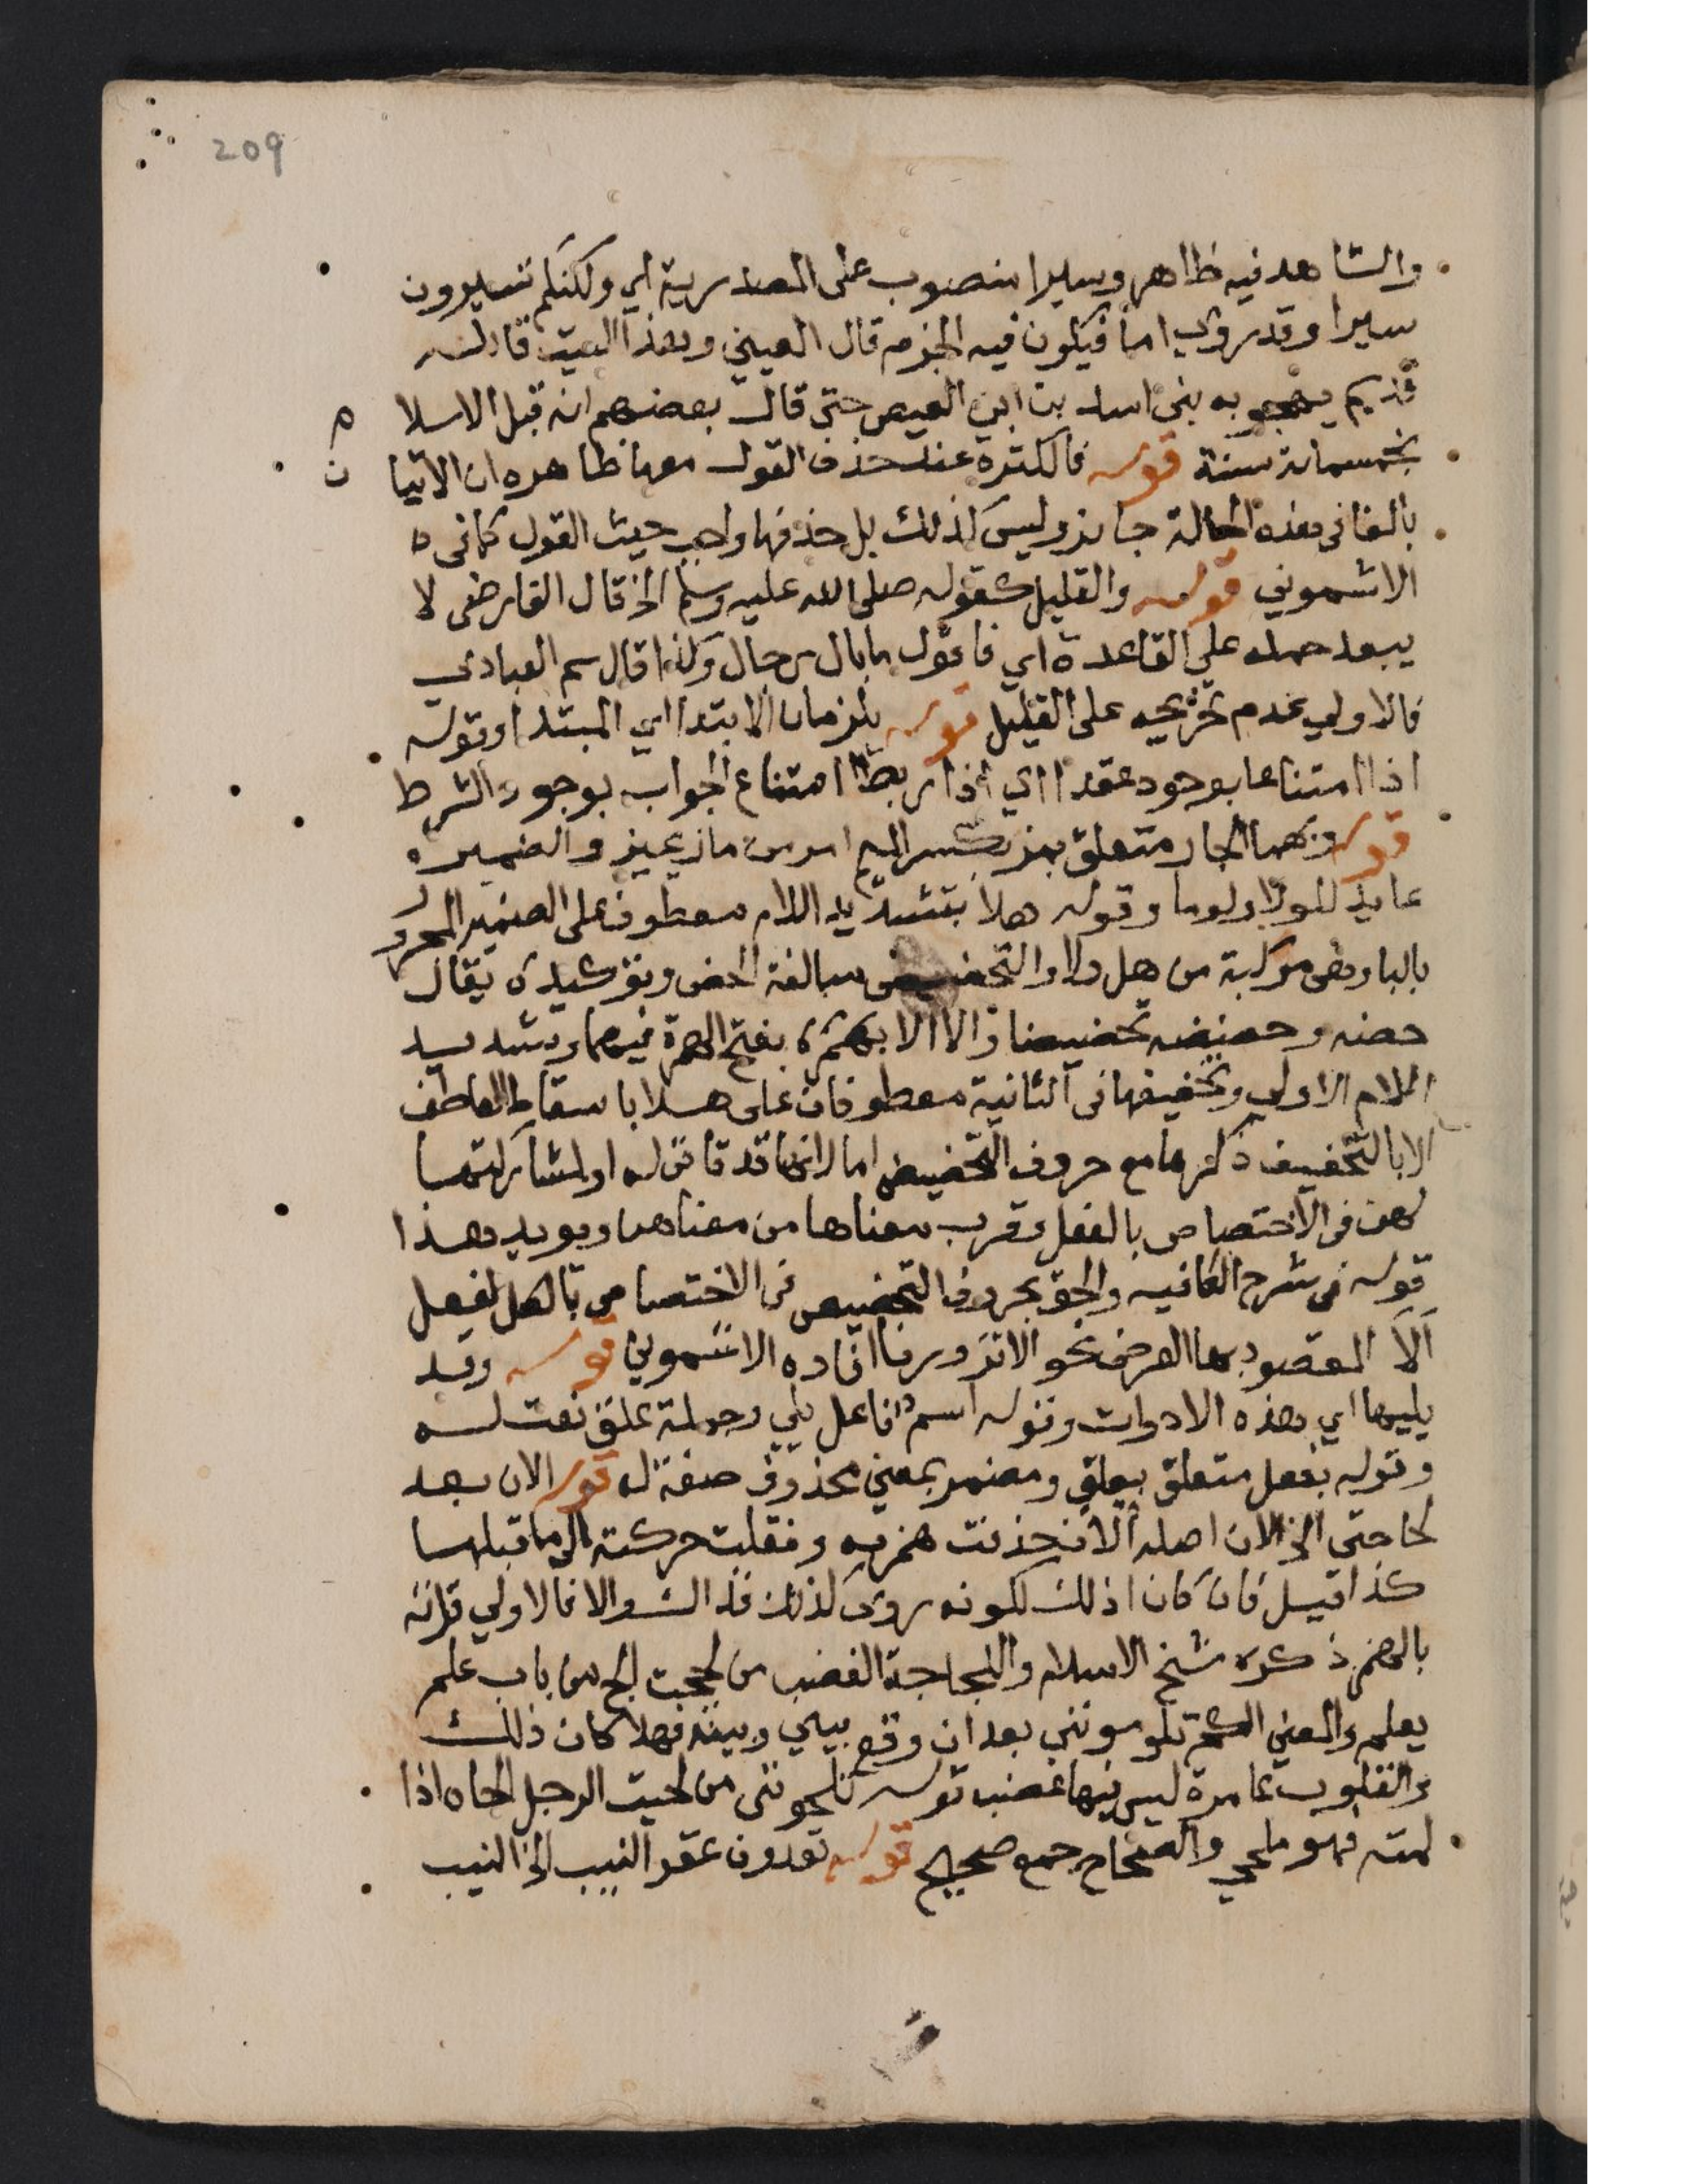 209
والشاهد فيه ظاهر وسيرا منصوب على المصدرية اي ولكنكم تسيرون
سيرا وقد روي اما فيكون فيه الجزم قال العيني وهذا البيت قاله
قديم يهجو به بني اسد بن ابي العيص حتى قال بعضهم انه قبل الاسلام
بخمسمائة سنة قوله فالكثرة عند حذف القول معها ظاهره ان الاتيان
بالفا في هذه الحالة جايز وليس كذلك بل حذفها واجب حيث القول كما في
الاشموني قوله والقليل كقوله صلى الله عليه وسلم الخ قال الفارضي لا
يبعد حمله على القاعدة اي فاقول ما بال رجال وكذا قال سم العبادي
فالاولى عدم تخريجه على القليل قوله يلزمان الابتدا اي المبتدا وقوله
اذا امتناعا بوجود عقدا اي اذا ربطا امتناع الجواب بوجود الشرط
قوله وبهما الجار متعلق بمز بكسر الميم امر من ماز يميز والضمير
عايد للولا ولوما وقوله هلا بتشديد اللام معطوف على الضمير المجرور
بالبا وهي مركبة من هل ولا والتحضيض مبالغة الحض وتوكيده يقال
حضه وحضضه تحضيضا والا الا بفتح الهمزة فيهما وتشديد
اللام الاولى وتخفيفها في الثانية معطوفان على هلا باسقاط العاطف
الا بالتخفيف ذكرها مع حروف التحضيض اما لانها قد تاتي له او لمشاركتها
لهن في الاختصاص بالفعل وقرب معناها من معناهن ويويد هذا
قوله في شرح الكافيه والحق بحروف التحضيض في الاختصاص بالفعل
الا المقصود بها العرض نحو الا تزورنا افاده الاشموني قوله وقد
يليها اي هذه الادوات وقوله اسم فاعل يلي وجملة علق نعت له
وقوله بفعل متعلق بعلق ومضمر بمعنى محذوف صفة له قوله الان بعد
لجاجتي الخ الان اصله الان حذفت همزته ونقلت حركته الى ما قبلها
كذا قيل فان كان ذلك لكونه روي كذلك فذاك والا فالاولى قراته
بالهمز ذكره شيخ الاسلام واللجاجة الغضب من لججت الج من باب علم
يعلم والمعنى انكم تلومونني بعد ان وقع بيني وبينه فهلا كان ذلك
والقلوب عامرة ليس فيها غضب قوله تلحونني من لحيت الرجل الحاه اذا
لمته فهو ملحي والصحاح جمع صحيح قوله تعدون عقر النيب الخ النيب